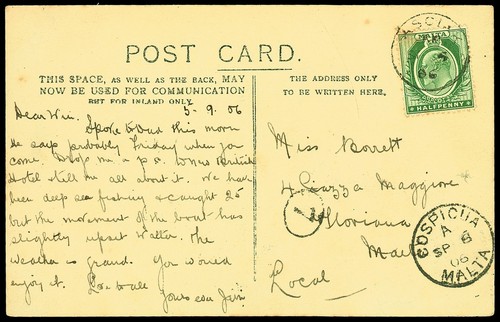 POST CARD.
THIS SPACE, AS WELL AS THE BACK, MAY
NOW BE USED FOR COMMUNICATION
BUT FOR INLAND ONLY.
5-9.06
Dear
Spoke to Dad this morn
he says probably Friday when you
come. Drop me a p.c. British
Hotel tell me all about it. We have
been deep sea fishing & caught 25
but the movement of the boat has
slightly upset Walter. The
weather is grand. You would
enjoy it. Love to all
Yours ever
THE ADDRESS ONLY
TO BE WRITTEN HERE.
MALTA
HALFPENNY
Miss Borrett
4 Piazza Maggiore
Floriana
Malta
Local
COSPICUA
A
SP 6
06
MALTA